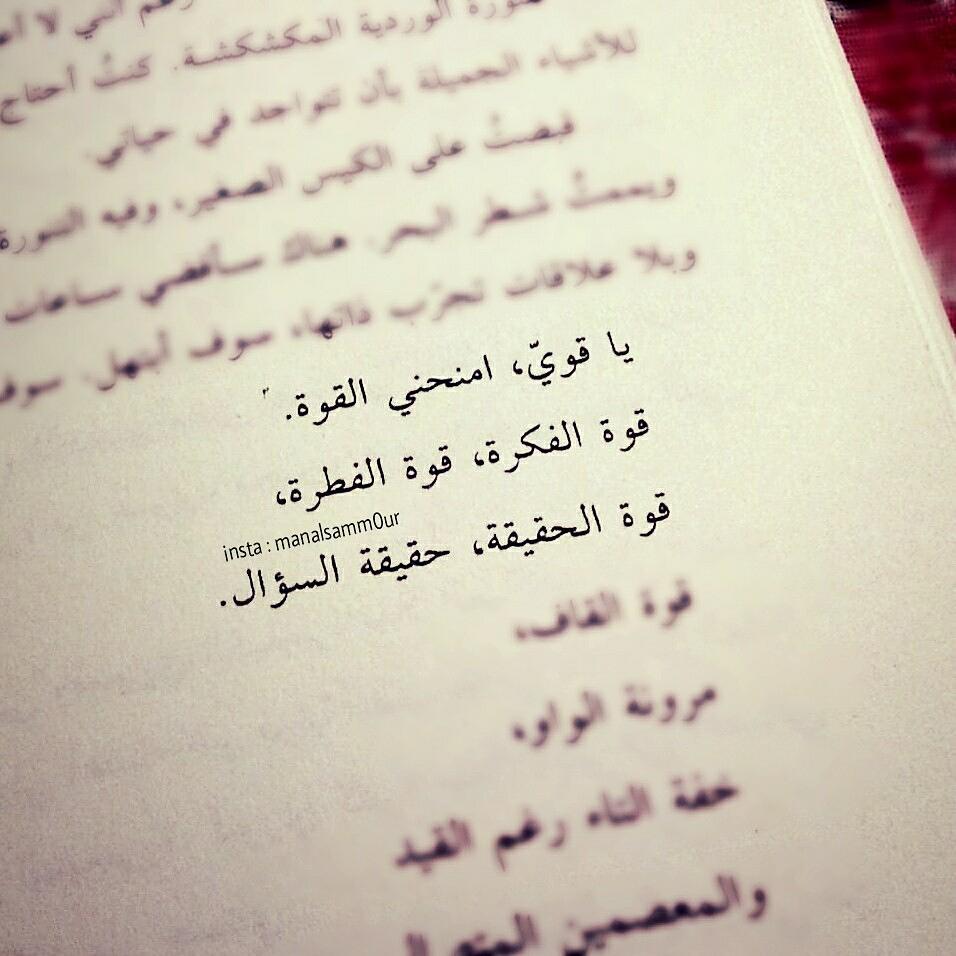 رغم أنني لا
الوردية المكشكشة. كنتُ أحتاج
للأشياء الجميلة بأن تتواجد في حياتي.
قبضتُ على الكيس الصغير، وفيه التنورة
ويممتُ شطر البحر. هناك سأقضي ساعات
وبلا علاقات تخرّب ذاتها، سوف أبتهل. سوف
يا قويّ، امنحني القوة.
قوة الفكرة، قوة الفطرة،
insta : manalsamm0ur
قوة الحقيقة، حقيقة السؤال.
قوة القاف،
مرونة الواو،
خفة التاء رغم القيد
والمعصمين